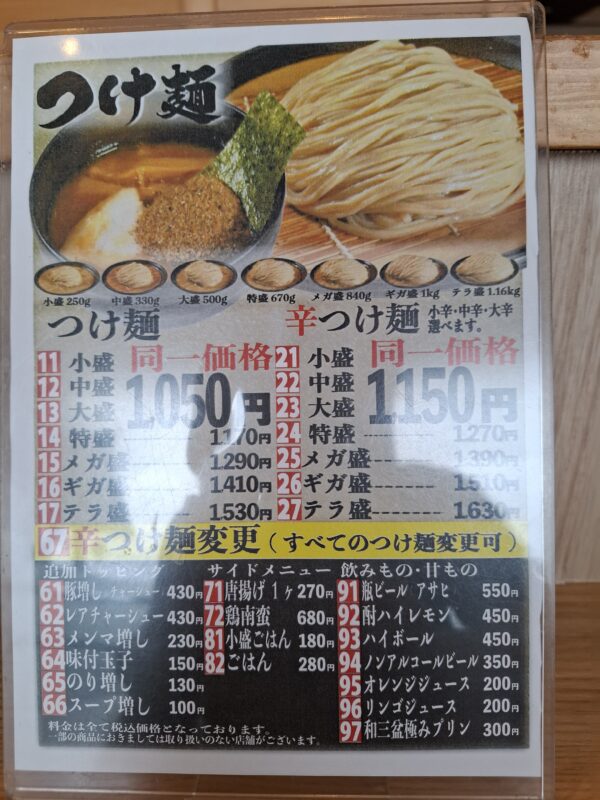 つけ麺
小盛 250g 中盛 330g 大盛 500g 特盛 670g メガ盛 840g ギガ盛 1kg テラ盛 1.16kg
つけ麺
11 小盛 同一価格
12 中盛 1,050円
13 大盛
14 特盛 1,170円
15 メガ盛 1,290円
16 ギガ盛 1,410円
17 テラ盛 1,530円
辛つけ麺 小辛・中辛・大辛
選べます。
21 小盛 同一価格
22 中盛 1,150円
23 大盛
24 特盛 1,270円
25 メガ盛 1,390円
26 ギガ盛 1,510円
27 テラ盛 1,630円
67 辛つけ麺変更(すべてのつけ麺変更可)
追加トッピング
61 豚増し チャーシュー 430円
62 レアチャーシュー 430円
63 メンマ増し 230円
64 味付玉子 150円
65 のり増し 130円
66 スープ増し 100円
サイドメニュー
71 唐揚げ1ヶ 270円
72 鶏南蛮 680円
81 小盛ごはん 180円
82 ごはん 280円
飲みもの・甘もの
91 瓶ビール アサヒ 550円
92 酎ハイレモン 450円
93 ハイボール 450円
94 ノンアルコールビール 350円
95 オレンジジュース 200円
96 リンゴジュース 200円
97 和三盆極みプリン 300円
料金は全て税込価格となっております。
一部の商品におきましては取り扱いのない店舗がございます。